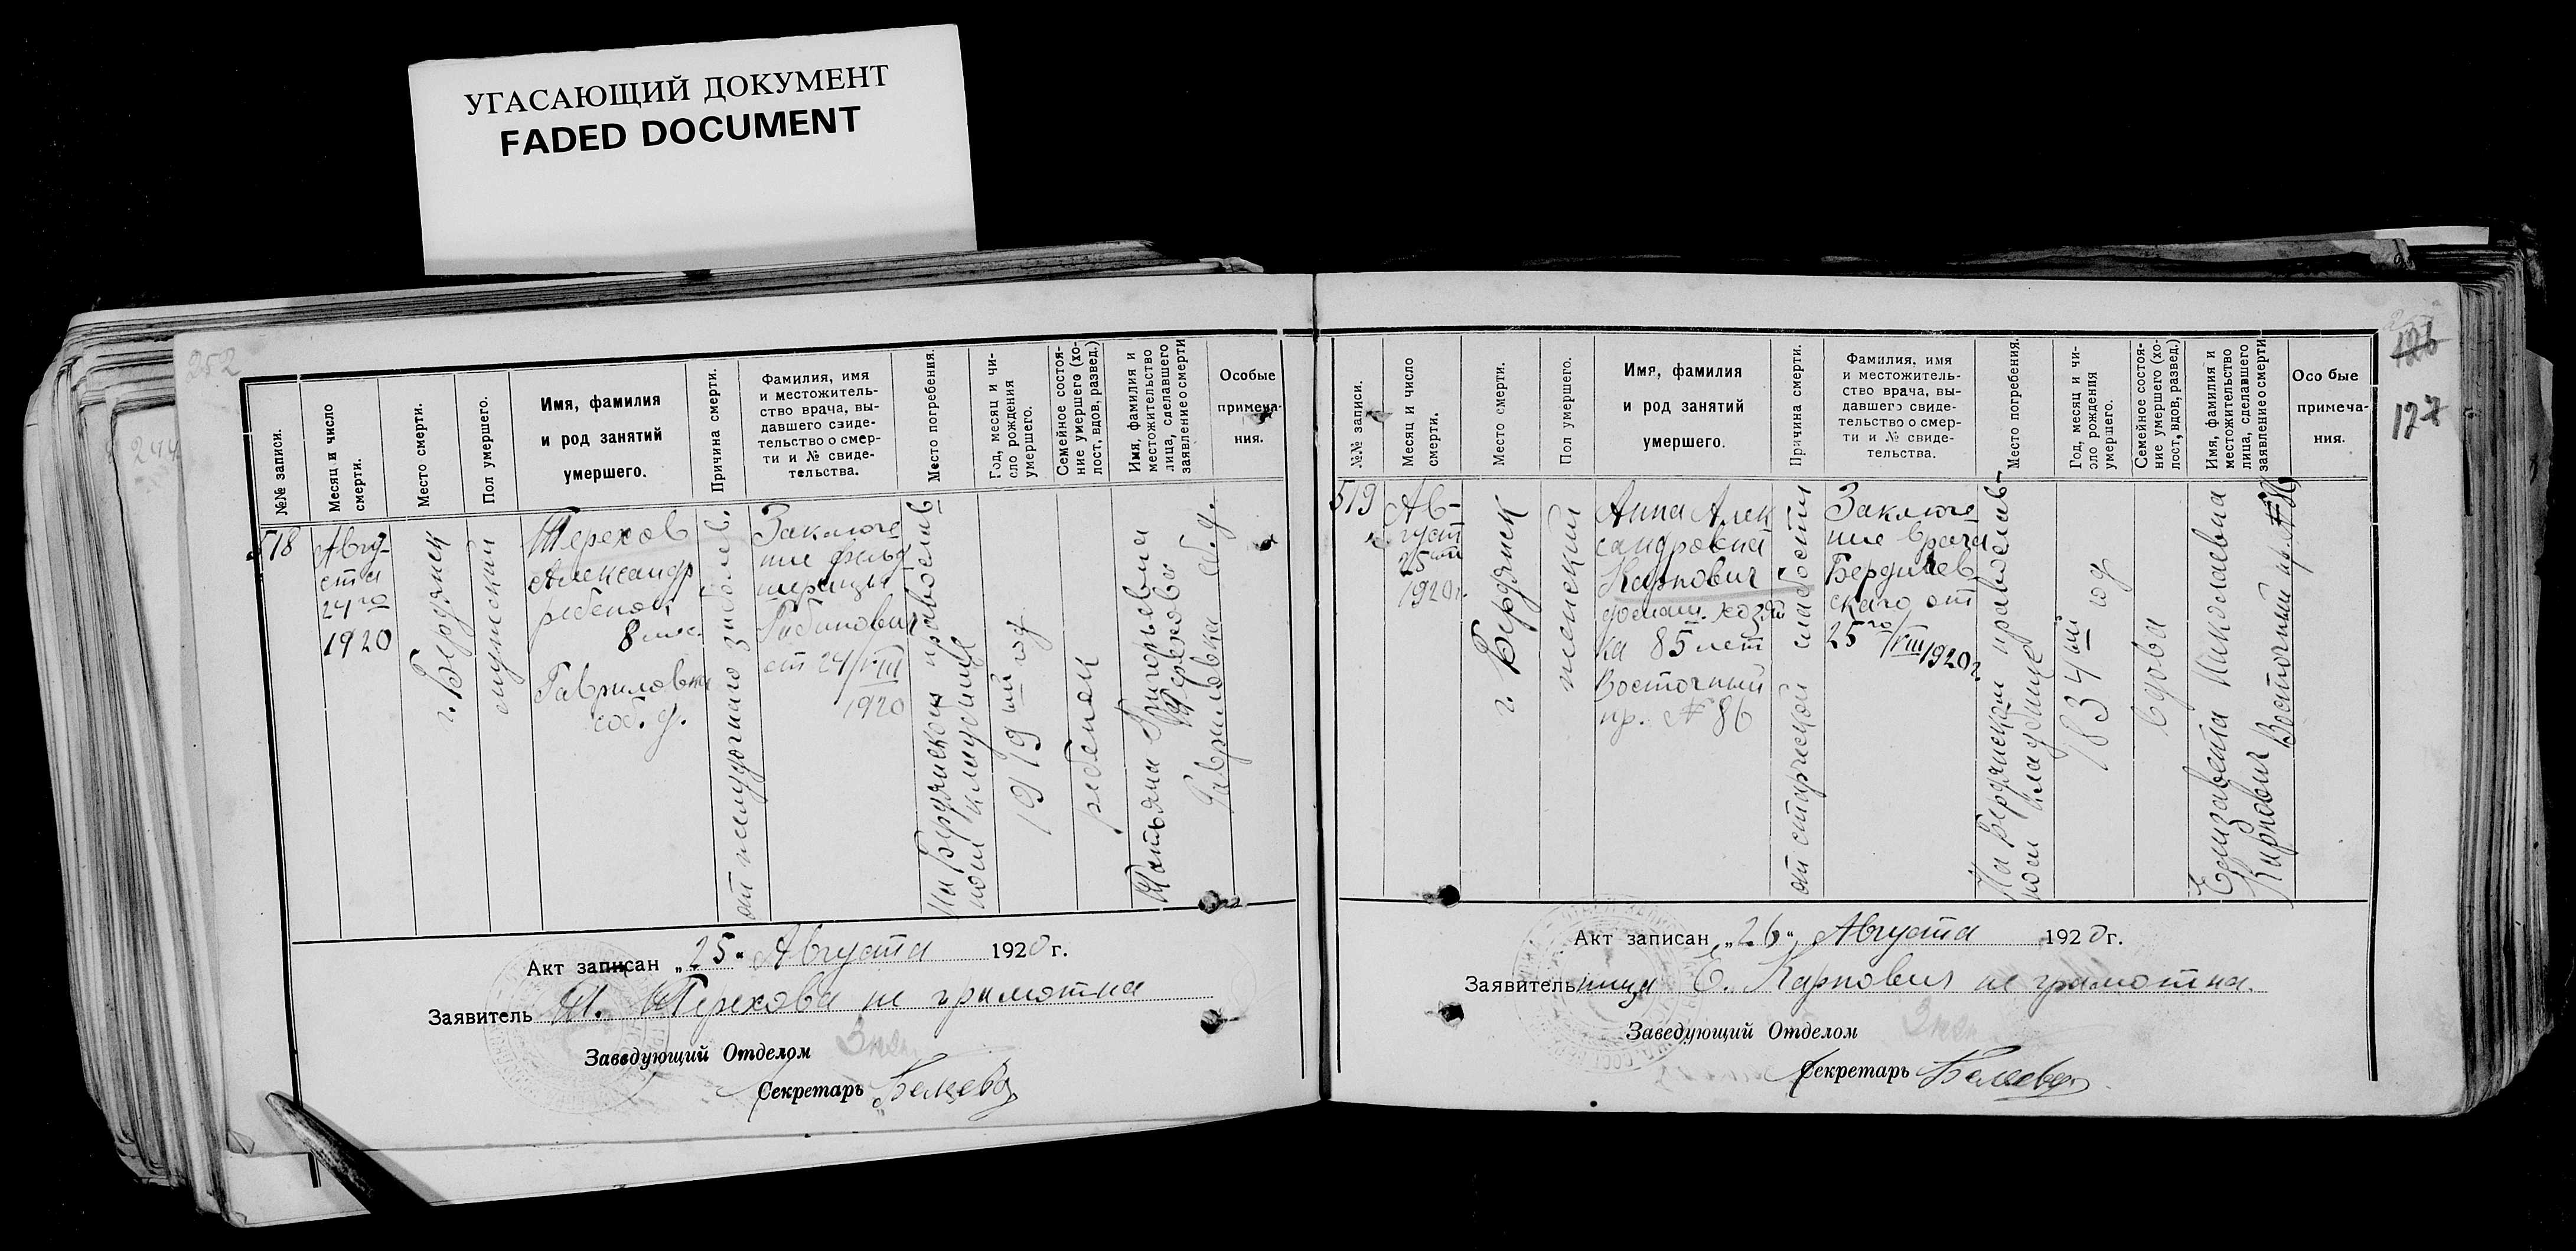 УГАСАЮЩИЙ ДОКУМЕНТ
FADED DOCUMENT
252
№№ записи.
Месяц и число
смерти.
Место смерти.
Пол умершего.
Имя, фамилия
и род занятий
умершего.
Причина смерти.
Фамилия, имя
и местожитель-
ство врача, вы-
давшего свиде-
тельство о смер-
ти и № свиде-
тельства.
Место погребения.
Год, месяц и чи-
сло рождения
умершего.
Семейное состоя-
ние умершего (хо-
лост, вдов, развед.)
Имя, фамилия и
местожительство
лица, сделавшего
заявление о смерти
Особые
примеча-
ния.
518
Авгу-
ста
24го
1920
г. Бердянск
мужский
Терехов
Александр
ребенок
8 мес.
Гавриловка
соб. д.
от желудочнаго заболев.
Заключе
ние фельд
шерицы
Рабинович
от 24/VIII
1920
На Бердянском православ-
ном кладбище
1919ый год
ребенок
Татьяна Григорьевна
Терехова
Гавриловка сб. д.
Акт записан „25“ Августа 1920 г.
Заявитель Т. Терехова не грамотна
Заведующий Отделом
Секретарь
126
127
№№ записи.
Месяц и число
смерти.
Место смерти.
Пол умершего.
Имя, фамилия
и род занятий
умершего.
Причина смерти.
Фамилия, имя
и местожитель-
ство врача, вы-
давшего свиде-
тельство о смер-
ти и № свиде-
тельства.
Место погребения.
Год, месяц и чи-
сло рождения
умершего.
Семейное состоя-
ние умершего (хо-
лост, вдов, развед.)
Имя, фамилия и
местожительство
лица, сделавшего
заявление о смерти
Особые
примеча-
ния.
519
Ав-
густ
25ый
1920г.
г. Бердянск
женский
Анна Алек
сандровна
Карпович
домаш. хозяй
ка 85 лет
Восточный
пр. № 86
от старческой слабости
Заключе
ние врача
Бердичев
скаго от
25го/VIII 1920г.
На Бердянском православ-
ном кладбище
1834ый год
вдова
Елизавета Николаевна
Карпович Восточный пр. № 86
Акт записан „26“ Августа 1920г.
Заявительница Е. Карпович не грамотна.
Заведующий Отделом
Секретарь